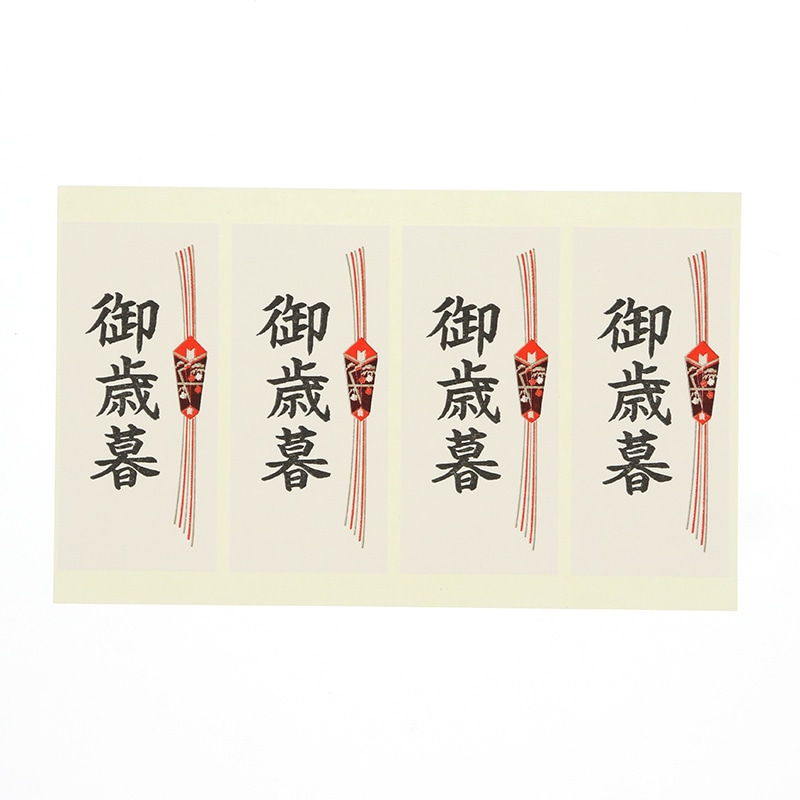 御歳暮
御歳暮
御歳暮
御歳暮